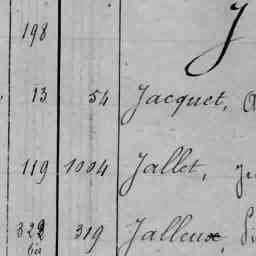 J
198
13 54 Jacquet,
119 1004 Jallet,
322 319 Jalleux,
bis